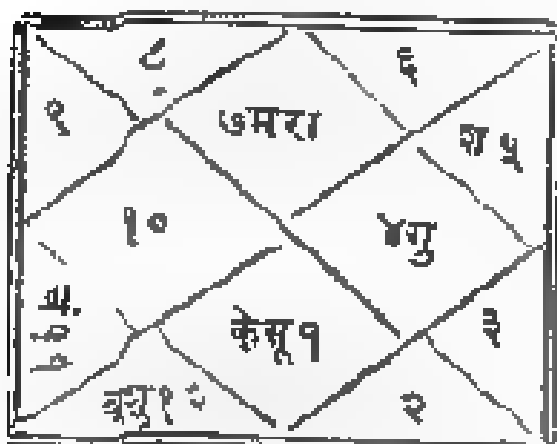 ८
६
९
७मरा
श ५
१०
४गु
३
११
केसू१
१२
२